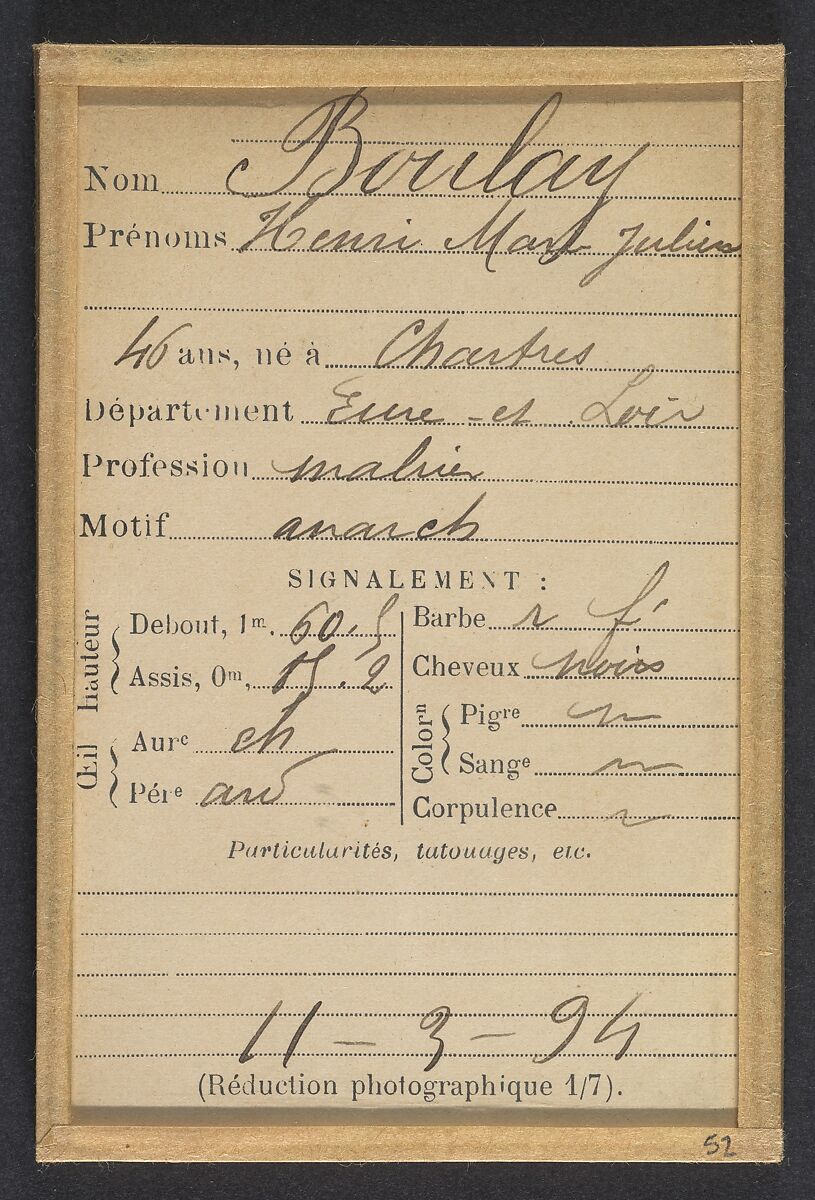 Nom Boulay
Prénoms Henri Marl Julien
46 ans, né à Chartres
Département Eure-et Loir
Profession malrier
Motif anarch
SIGNALEMENT :
hauteur
Debout, 1m. 60.5
Assis, 0m,
Œil
Aure ch
Pére
Barbe
Cheveux noirs
Colorn
Pigre
Sange
Corpulence
Particularités, tatouages, etc.
11-3-94
(Réduction photographique 1/7).
52